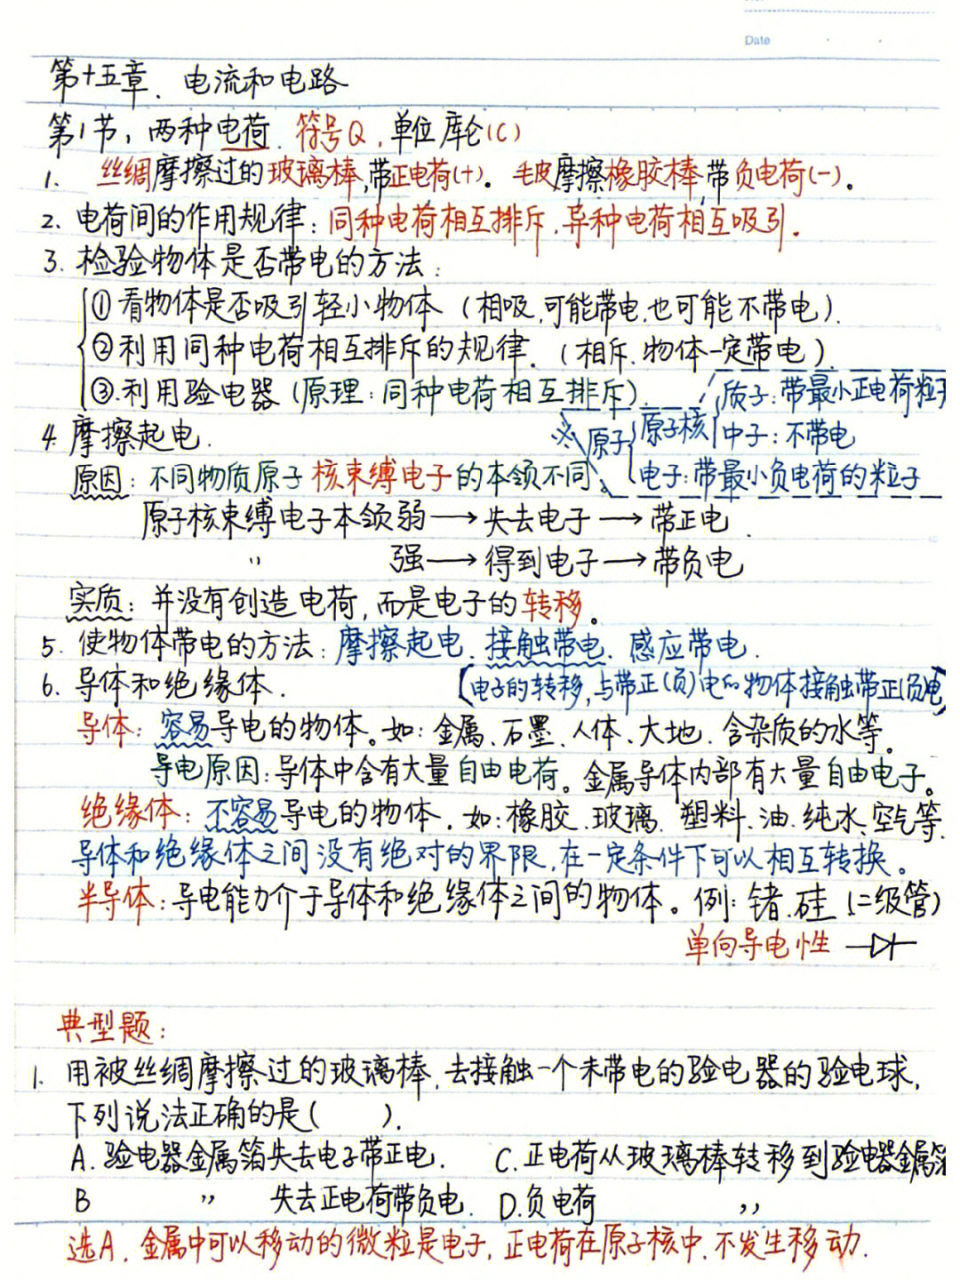 Date
第十五章、电流和电路
第1节,两种电荷.符号Q,单位库仑(C)
1. 丝绸摩擦过的玻璃棒,带正电荷(+)。毛皮摩擦橡胶棒,带负电荷(-)。
2. 电荷间的作用规律:同种电荷相互排斥,异种电荷相互吸引.
3. 检验物体是否带电的方法:
①看物体是否吸引轻小物体(相吸,可能带电,也可能不带电).
②利用同种电荷相互排斥的规律.(相斥,物体一定带电)
③.利用验电器(原理:同种电荷相互排斥).
质子:带最小正电荷粒子
4. 摩擦起电.
※原子 原子核 中子:不带电
原因:不同物质原子核束缚电子的本领不同。
电子:带最小负电荷的粒子
原子核束缚电子本领弱→失去电子→带正电.
〃 强→得到电子→带负电
实质:并没有创造电荷,而是电子的转移。
5. 使物体带电的方法:摩擦起电.接触带电.感应带电.
6. 导体和绝缘体.(电子的转移,与带正(负)电的物体接触带正(负)电)
导体:容易导电的物体。如:金属、石墨、人体、大地、含杂质的水等。
导电原因:导体中含有大量自由电荷。金属导体内部有大量自由电子。
绝缘体:不容易导电的物体.如:橡胶、玻璃、塑料、油、纯水、空气等.
导体和绝缘体之间没有绝对的界限,在一定条件下可以相互转换。
半导体:导电能力介于导体和绝缘体之间的物体。例:锗.硅(二级管)
单向导电性
典型题:
1. 用被丝绸摩擦过的玻璃棒,去接触一个未带电的验电器的验电球,
下列说法正确的是( ).
A.验电器金属箔失去电子带正电. C.正电荷从玻璃棒转移到验电器金属箔
B 〃 失去正电荷带负电. D.负电荷 〃
选A.金属中可以移动的微粒是电子,正电荷在原子核中.不发生移动.